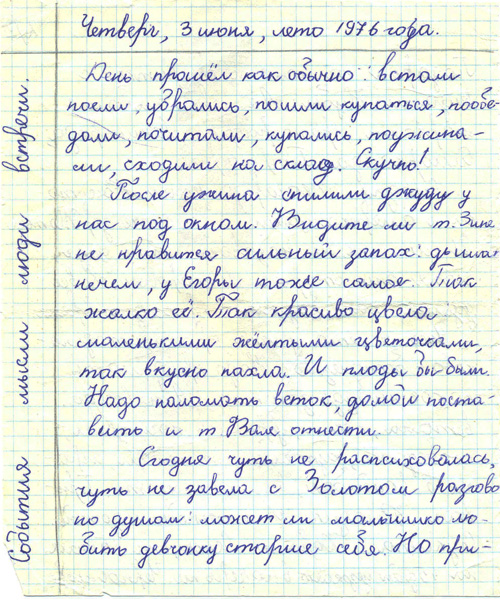 Четверг, 3 июня, лето 1976 года.
События мысли люди встречи.
День прошёл как обычно: встали
поели, убрались, пошли купаться, пообе-
дали, почитали, купались, поужина-
ли, сходили на склад. Скучно!
После ужина спилили джуду у
нас под окном. Видите ли т. Зине
не нравится сильный запах: дышать
нечем, у Егоры тоже самое. Так
жалко её. Так красиво цвела
маленькими жёлтыми цветочками,
так вкусно пахла. И плоды бы были.
Надо наломать веток, домой поста-
вить и т Вале отнести.
Сгодня чуть не распсиховалась,
чуть не завела с Золотом разгово
по душам: может ли мальчишко лю-
бить девчонку старше себя. Но при-